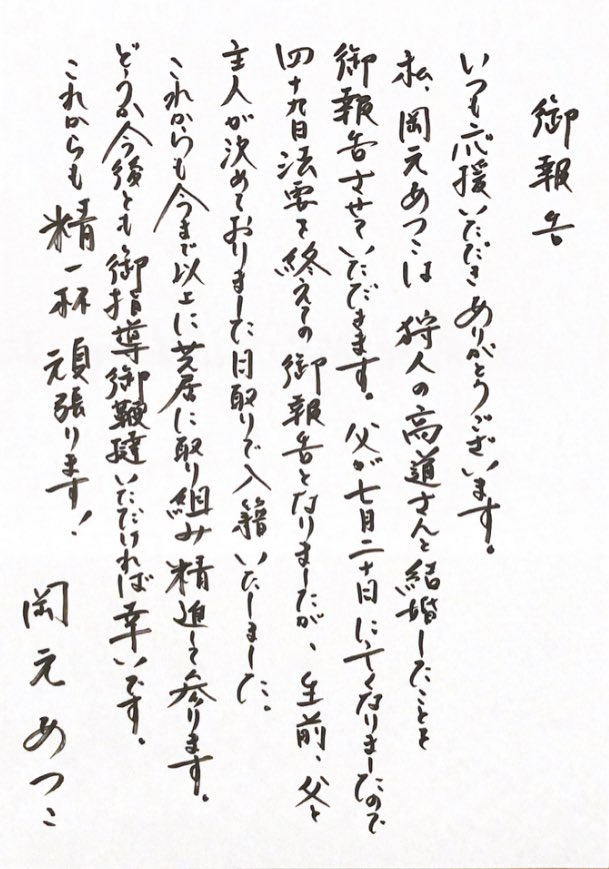 御報告
いつも応援いただきありがとうございます。
私、岡元あつこは 狩人の高道さんと結婚したことを
御報告させていただきます。父が七月二十日に亡くなりましたので
四十九日法要を終えての御報告となりましたが、生前、父と
主人が決めておりました日取りで入籍いたしました。
これからも今まで以上に芝居に取り組み精進して参ります。
どうか今後とも御指導御鞭撻いただければ幸いです。
これからも精一杯頑張ります！
岡元あつこ